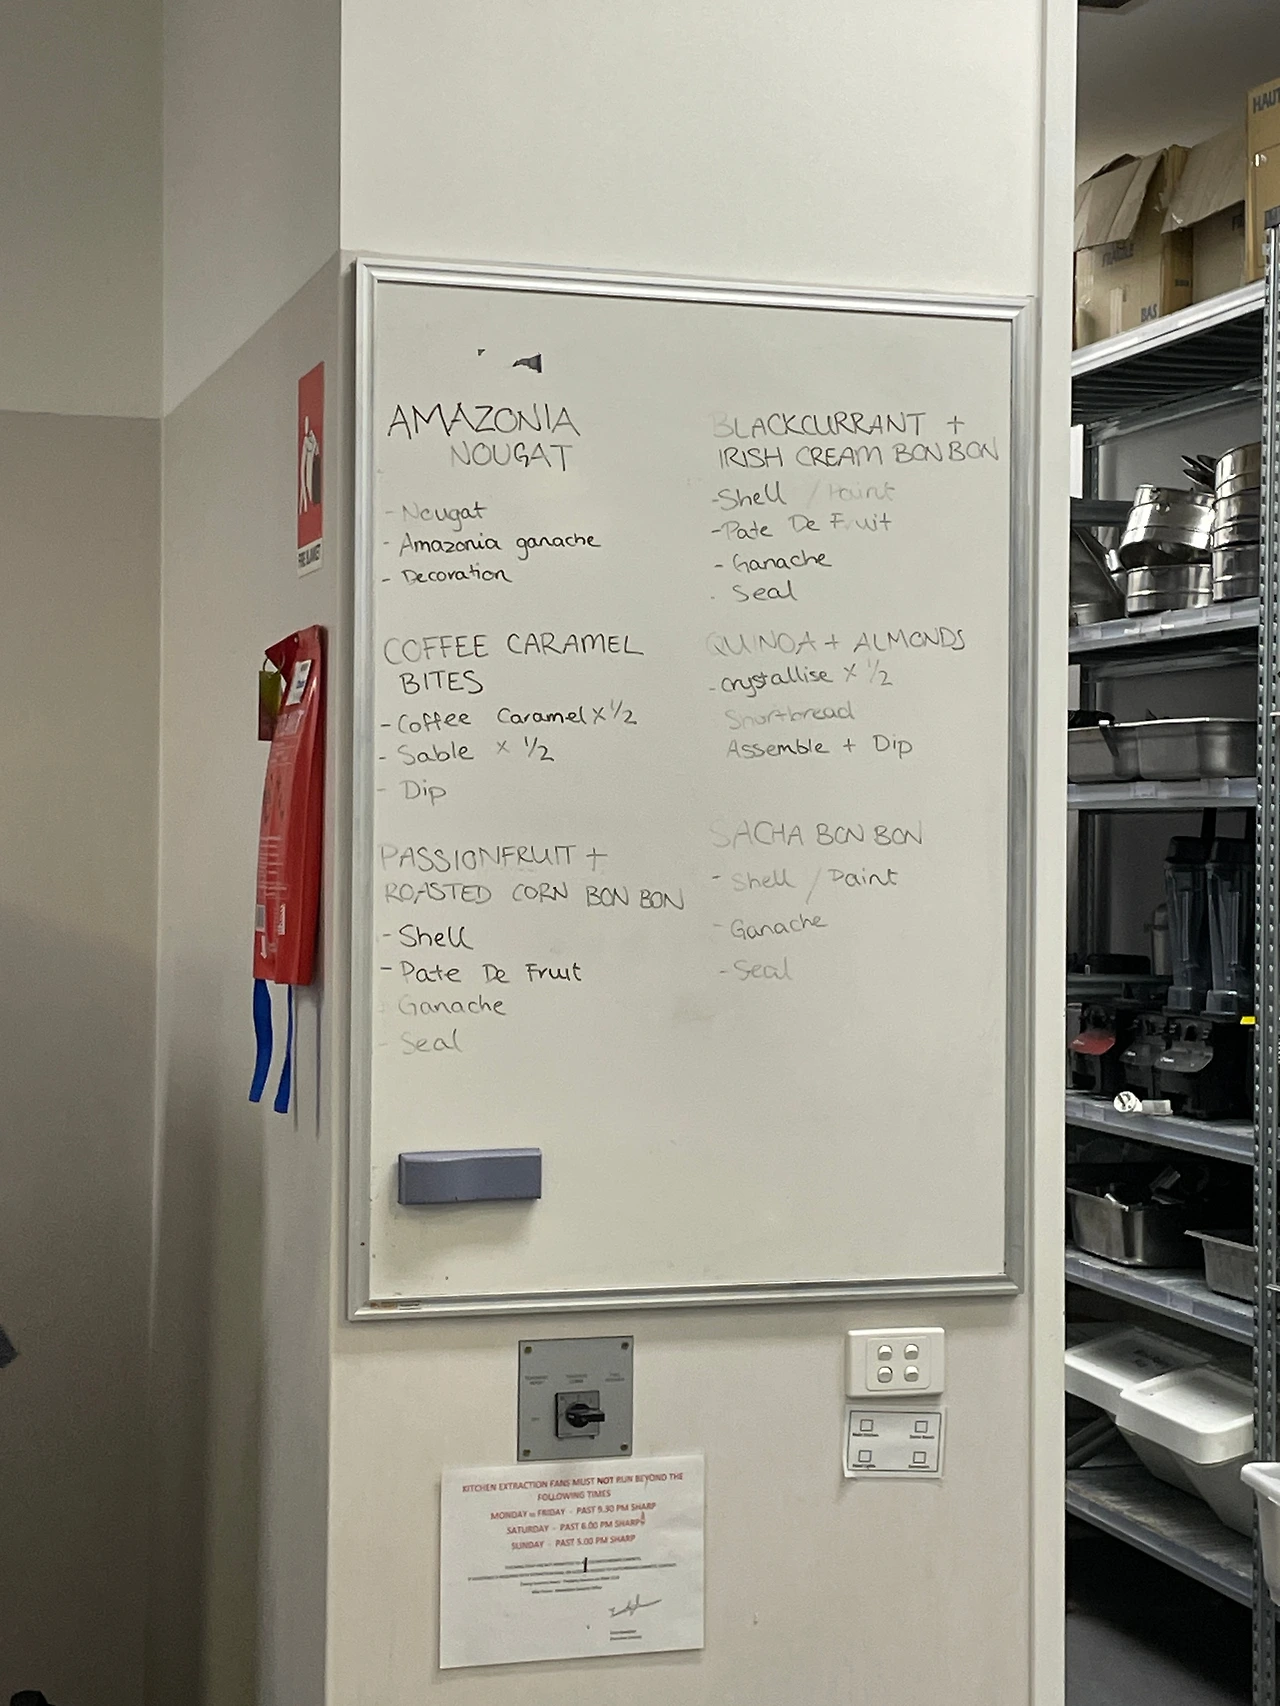 AMAZONIA
NOUGAT
- Nougat
- Amazonia ganache
- Decoration
COFFEE CARAMEL
BITES
- Coffee Caramel x 1/2
- Sable x 1/2
- Dip
PASSIONFRUIT +
ROASTED CORN BON BON
- Shell
- Pate De Fruit
- Ganache
- Seal
BLACKCURRANT +
IRISH CREAM BON BON
- Shell / Paint
- Pate De Fruit
- Ganache
- Seal
QUINOA + ALMONDS
- Crystallise x 1/2
Shortbread
Assemble + Dip
SACHA BON BON
- Shell / Paint
- Ganache
- Seal
FIRE BLANKET
KITCHEN EXTRACTION FANS MUST NOT RUN BEYOND THE
FOLLOWING TIMES
MONDAY to FRIDAY - PAST 9.30 PM SHARP
SATURDAY - PAST 6.00 PM SHARP
SUNDAY - PAST 5.00 PM SHARP
FRAGILE
BAS
HAUT